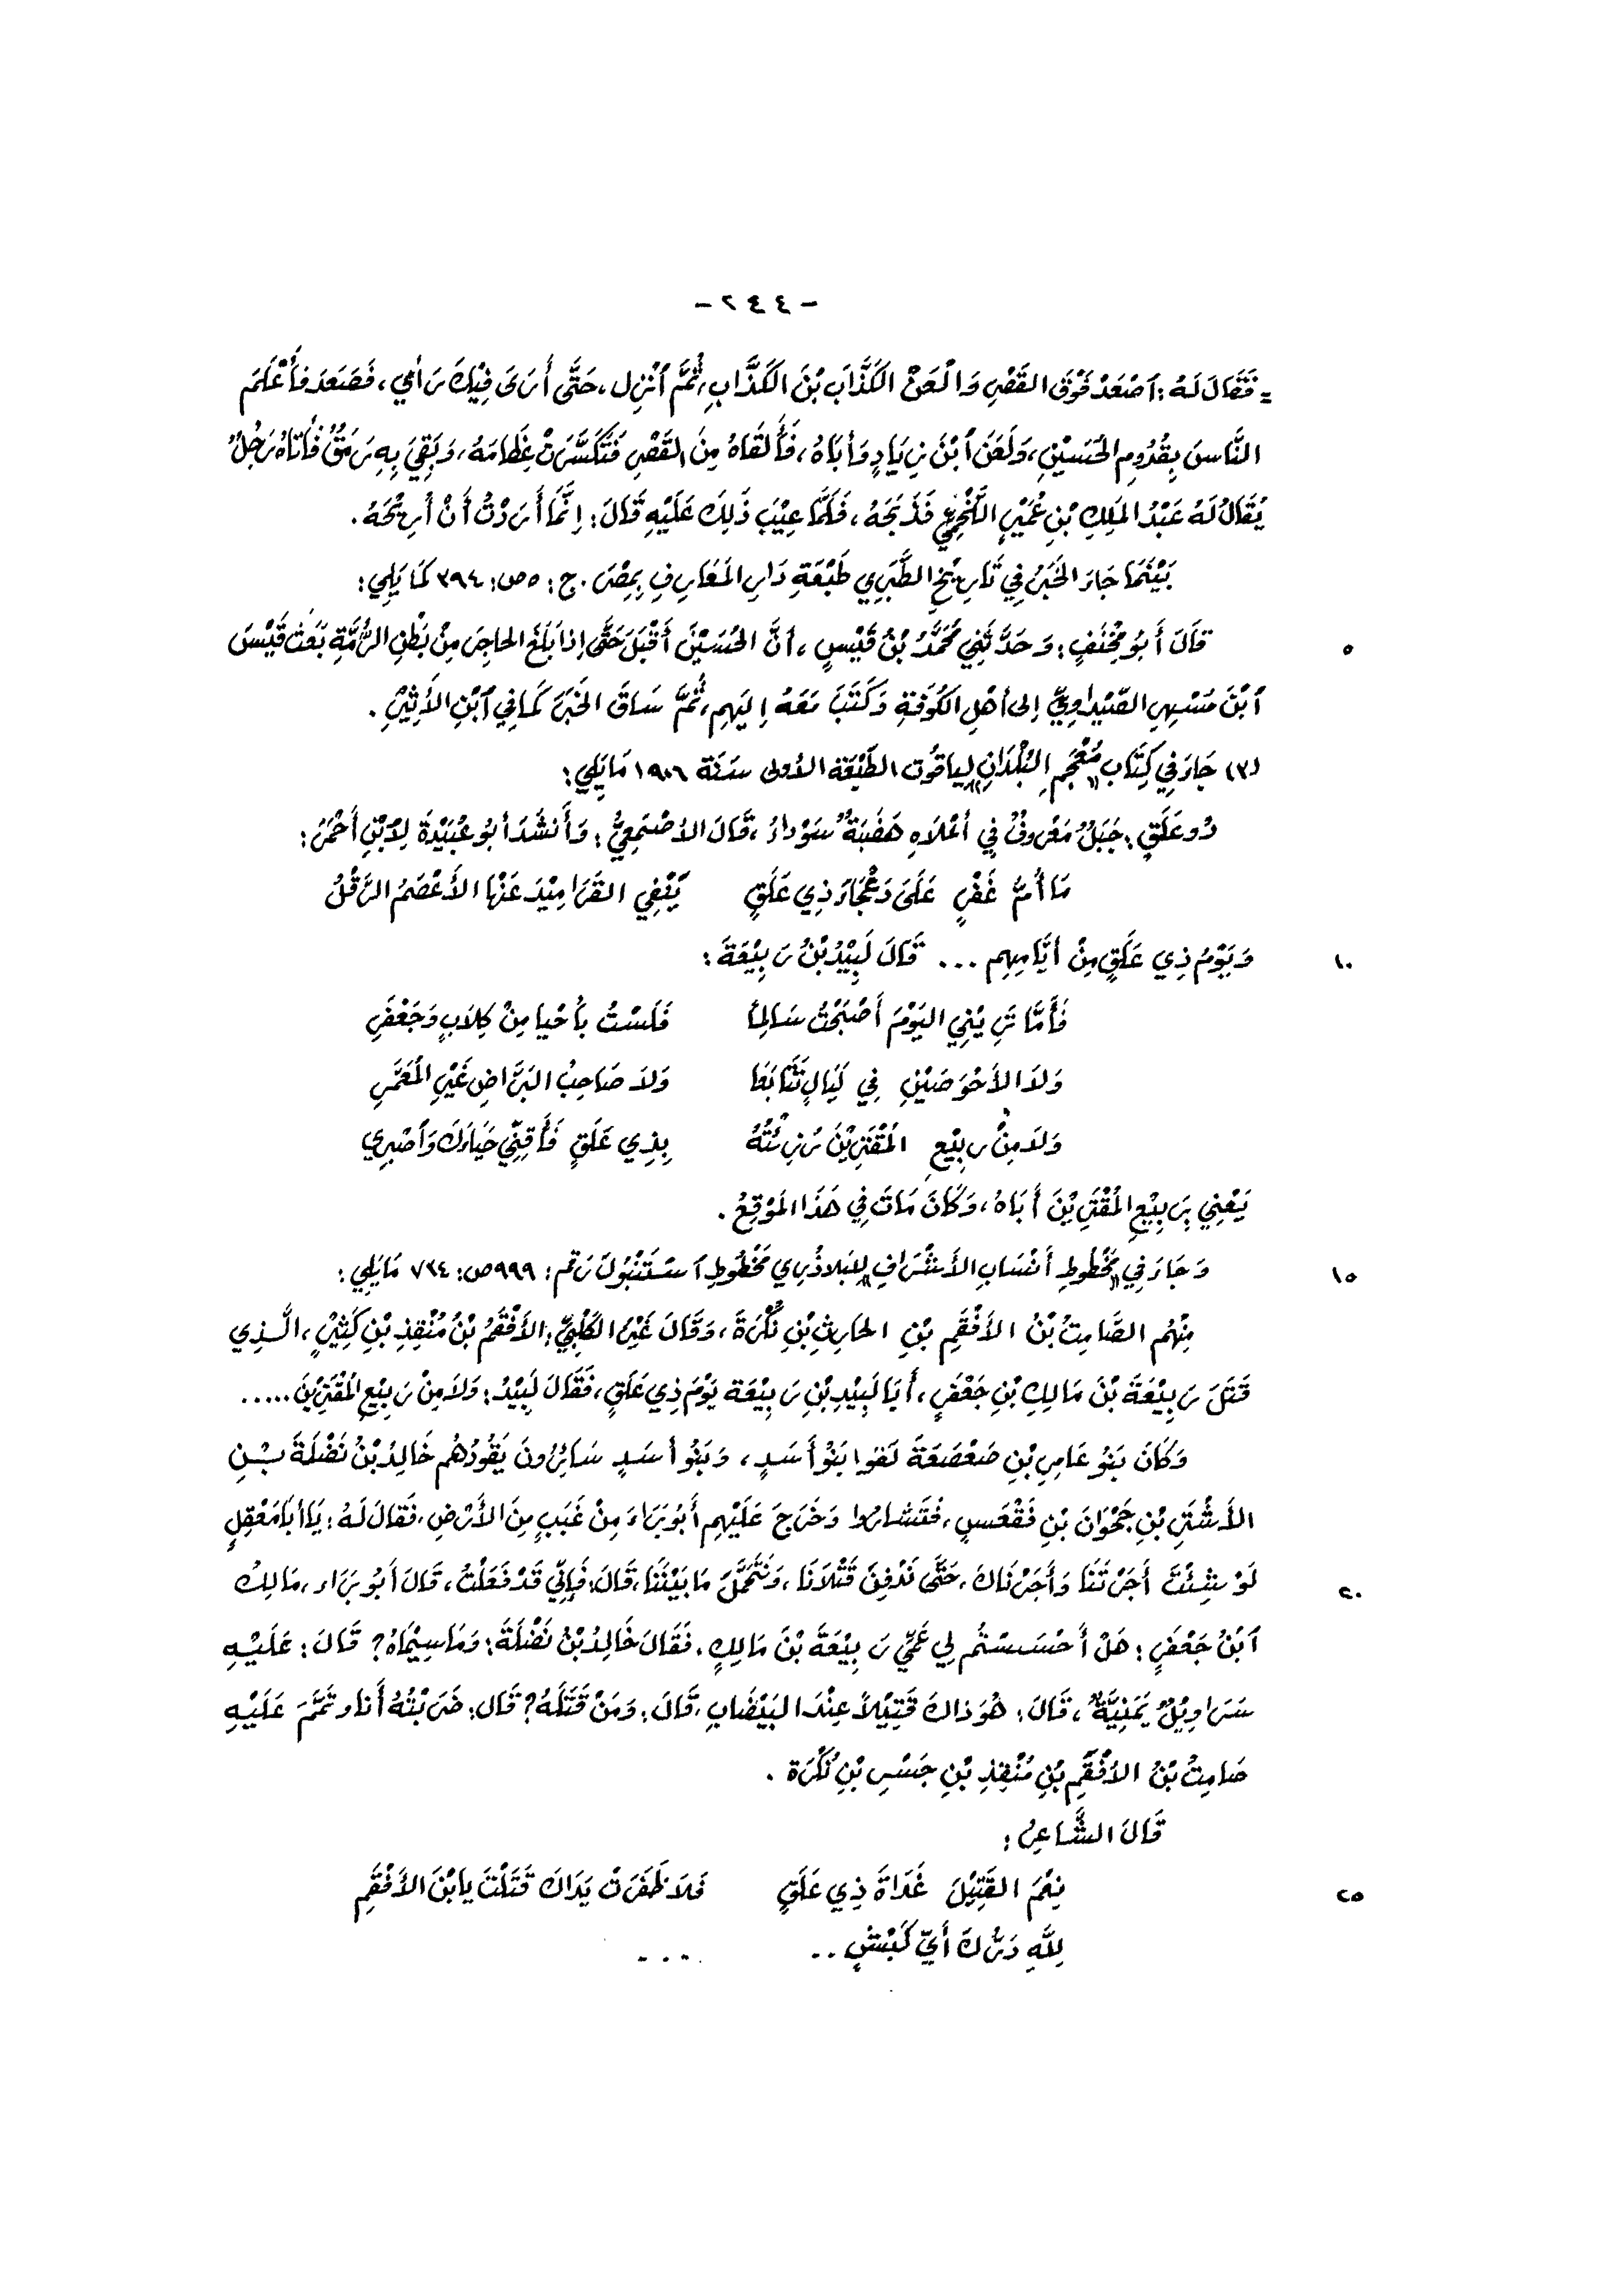 - ٢٤٤ -
= فَقَالَ لَهُ: ٱصْعَدْ فَوْقَ القَصْرِ وَالْعَنْ الكَذَّابَ بْنَ الكَذَّابِ، ثُمَّ ٱنْزِل، حَتَّى أَرَى فِيْكَ رَأْيِي، فَصَعَدَ فَأَعْلَمَ
النَّاسَ بِقُدُومِ الحُسَيْنِ، وَلَعَنَ ٱبْنَ زِيَادٍ وَأبَاهُ، فَأَلقَاهُ مِنَ القَصْرِ فَتَكَسَّرَتْ عِظَامَهُ، وَبَقِيَ بِهِ رَمَقٌ فَأَتَاهُ رَجُلٌ
يُقَالُ لَهُ عَبْدُ المَلِكِ بْنِ عُمَيْرٍ اللَّخْمِيِّ فَذَبَحَهُ، فَلَمَّا عِيْبَ ذَلِكَ عَلَيْهِ قَالَ: إِنَّمَا أَرَدْتُ أَنْ أُرِيْحَهُ.
بَيْنَمَا جَاءَ الخَبَرُ فِي تَارِيْخِ الطَّبَرِي طَبْعَةِ دَارِ المَعَارِفِ بِمِصْرَ. ج: ٥ ص: ٣٩٤ كَمَا يَلِي:
٥ قَالَ أَبُو مِخْنَفٍ: وَحَدَّثَنِي مُحَمَّدُ بْنُ قَيْسٍ، أنَّ الحُسَيْنَ أَقْبَلَ حَتَّى إذَا بَلَغَ الحاجِرَ مِنْ بَطْنِ الرُّمَّةِ بَعَثَ قَيْسَ
ٱبْنَ مُسْهِرِ الصَّيْدَاوِيَّ إلى أهْلِ الكُوفَةِ وَكَتَبَ مَعَهُ إِلَيْهِم، ثُمَّ سَاقَ الخَبَرَ كَمَا فِي ٱبْنِ الأَثِيْرِ.
(٣) جَاءَ فِي كِتَابِ «مُعْجَمِ البُلْدَانِ» لِيَاقُوتَ الطَّبْعَةِ الأولى سَنَة ١٩٠٦ مَا يَلِي:
ذُو عَلَقٍ: جَبَلٌ مَعْرُوفٌ فِي أعْلَاهِ هَضْبَةٌ سَوْدَاءُ، قَالَ الأصْمَعِيُّ: وَأَنشَدَ أبُو عُبَيْدَةَ لِٱبْنِ أَحْمَرَ:
مَا أُمُّ غَفْرٍ عَلَى دَعْجَاءَ ذِي عَلَقٍ يَنْفِي القَرَامِيْدَ عَنْهَا الأَعْصَمُ الوَقْلُ
١٠ وَيَوْمُ ذِي عَلَقٍ مِنْ أيَّامِهِم ... قَالَ لَبِيْدُ بْنُ رَبِيْعَةَ:
فَأَمَّا تَرِيْنِي اليَوْمَ أَصْبَحْتُ سَالِماً فَلَسْتُ بِأَحْيا مِنْ كِلَابٍ وَجَعْفَرِ
وَلَا الأَحْوَصَيْنِ فِي لَيَالٍ تَتَابَعَا وَلَا صَاحِبُ البَرَّاضِ غَيْرِ المُغَمَّرِ
وَلَا مِنْ رَبِيْعِ المُقْتَرِيْنَ رُزِئْتُهُ بِذِي عَلَقٍ فَأَقِنِّي حَيَاءَكَ وَٱصْبِرِي
يَعْنِي بِرَبِيْعِ المُقْتَرِيْنَ أَبَاهُ، وَكَانَ مَاتَ فِي هَذَا المَوْقِعِ.
١٥ وَجَاءَ فِي «مَخْطُوطِ أَنْسَابِ الأَشْرَافِ» لِلبَلاذُرِي مَخْطُوطِ ٱسْتَنْبُولَ رَقم: ٩٩٩ ص: ٧٢٤ مَا يَلِي:
مِنْهُم الصَّامِتُ بْنُ الأَفْقَمِ بْنِ الحَارِثِ بْنِ نُكْرَةَ، وَقَالَ غَيْرُ الكَلْبِيِّ: الأَفْقَمُ بْنُ مُنْقِذِ بْنِ كَثِيْرٍ، الَّذِي
قَتَلَ رَبِيْعَةَ بْنَ مَالِكِ بْنِ جَعْفَرٍ، أَبَا لَبِيْدِ بْنِ رَبِيْعَة يَوْمَ ذِي عَلَقٍ، فَقَالَ لَبِيْدُ: وَلَا مِنْ رَبِيْعِ المُقْتَرِيْنَ .....
وَكَانَ بَنُو عَامِرِ بْنِ صَعْصَعَةَ لَقوا بَنُو أَسَدٍ، وَبَنُو أَسَدٍ سَائِرُونَ يَقُودُهُم خَالِدُ بْنُ نَضْلَةَ بْنِ
الأَشْتَرِ بْنِ جَحْوَانَ بْنِ فَقْعَسٍ، فَتَشَاءَرُوا وَخَرَجَ عَلَيْهِم أَبُو بَرَاءَ مِنْ غَبَبٍ مِنَ الأَرْضِ، فَقَالَ لَهُ: يَا أبَا مَعْقِلٍ
٢٠ لَوْ شِئْتَ أَجَرْتَنَا وَأَجَرْنَاكَ، حَتَّى نَدْفِنَ قَتْلَانَا، وَنَتَحَمَّلَ مَا بَيْنَنَا، قَالَ: فَإِنِّي قَدْ فَعَلْتُ، قَالَ أَبُو بَرَاء، مَالِكُ
ٱبْنُ جَعْفَرٍ: هَلْ أَحْسَسْتُم لِي عَمِّي رَبِيْعَةَ بْنَ مَالِكٍ، فَقَالَ خَالِدُ بْنُ نَضْلَةَ: وَمَا سِيْمَاهُ؟ قَالَ: عَلَيْهِ
سَرَاوِيْلُ يَمَنِيَّةٌ، قَالَ: هُوَ ذَاكَ قَتِيْلاً عِنْدَ البَيْضَاءِ، قَالَ: وَمَنْ قَتَلَهُ؟ قَالَ: ضَرَبْتُهُ أَنَا وتَمَّمَ عَلَيْهِ
صَامِتُ بْنُ الأَفْقَمِ بْنِ مُنْقِذِ بْنِ جَسْرِ بْنِ نُكْرَة.
قَالَ الشَّاعِرُ:
٢٥ نِعْمَ القَتِيْلَ غَدَاةَ ذِي عَلَقٍ فَلَا ظَفَرَتْ يَدَاكَ قَتَلْتَ يا بْنَ الأَفْقَمِ
لِلَّهِ دَرُّكَ أَيّ كَبْشٍ .. ....